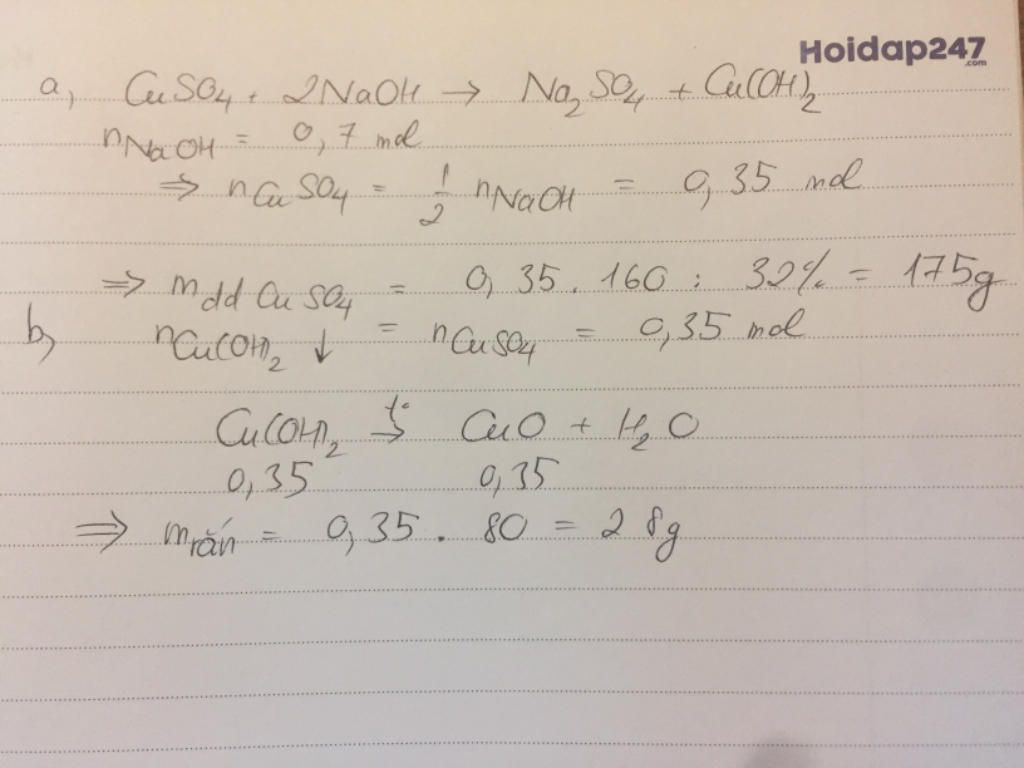 Hoidap247
.com
a, CuSO₄ + 2NaOH → Na₂SO₄ + Cu(OH)₂
nNaOH = 0,7 mol
⇒ nCuSO₄ = 1/2 nNaOH = 0,35 mol
⇒ mdd CuSO₄ = 0,35 . 160 : 32% = 175g
b, nCu(OH)₂ ↓ = nCuSO₄ = 0,35 mol
Cu(OH)₂ t°→ CuO + H₂O
0,35 0,35
⇒ mrắn = 0,35 . 80 = 28g